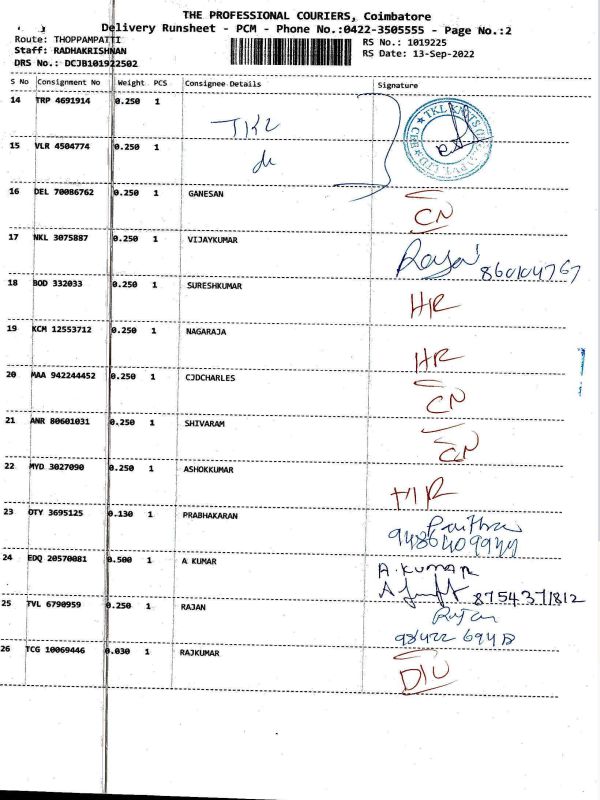 THE PROFESSIONAL COURIERS, Coimbatore
Delivery Runsheet - PCM - Phone No.:0422-3505555 - Page No.:2
Route: THOPPAMPATTI
RS No.: 1019225
Staff: RADHAKRISHNAN
RS Date: 13-Sep-2022
DRS No.: DCJB101922502
S No Consignment No Weight PCS Consignee Details Signature
14 TRP 4691914 0.250 1
TKL
15 VLR 4504774 0.250 1
16 DEL 70086762 0.250 1 GANESAN CN
17 NKL 3075887 0.250 1 VIJAYKUMAR
18 BOD 332033 0.250 1 SURESHKUMAR HR
19 KCM 12553712 0.250 1 NAGARAJA HR
20 MAA 942244452 0.250 1 CJDCHARLES CN
21 ANR 80601031 0.250 1 SHIVARAM CN
22 MYD 3027090 0.250 1 ASHOKKUMAR HR
23 OTY 3695125 0.130 1 PRABHAKARAN
24 EDQ 20570081 0.500 1 A KUMAR A.KUMAR
8754371812
25 TVL 6790959 0.250 1 RAJAN Rajan
26 TCG 10069446 0.030 1 RAJKUMAR